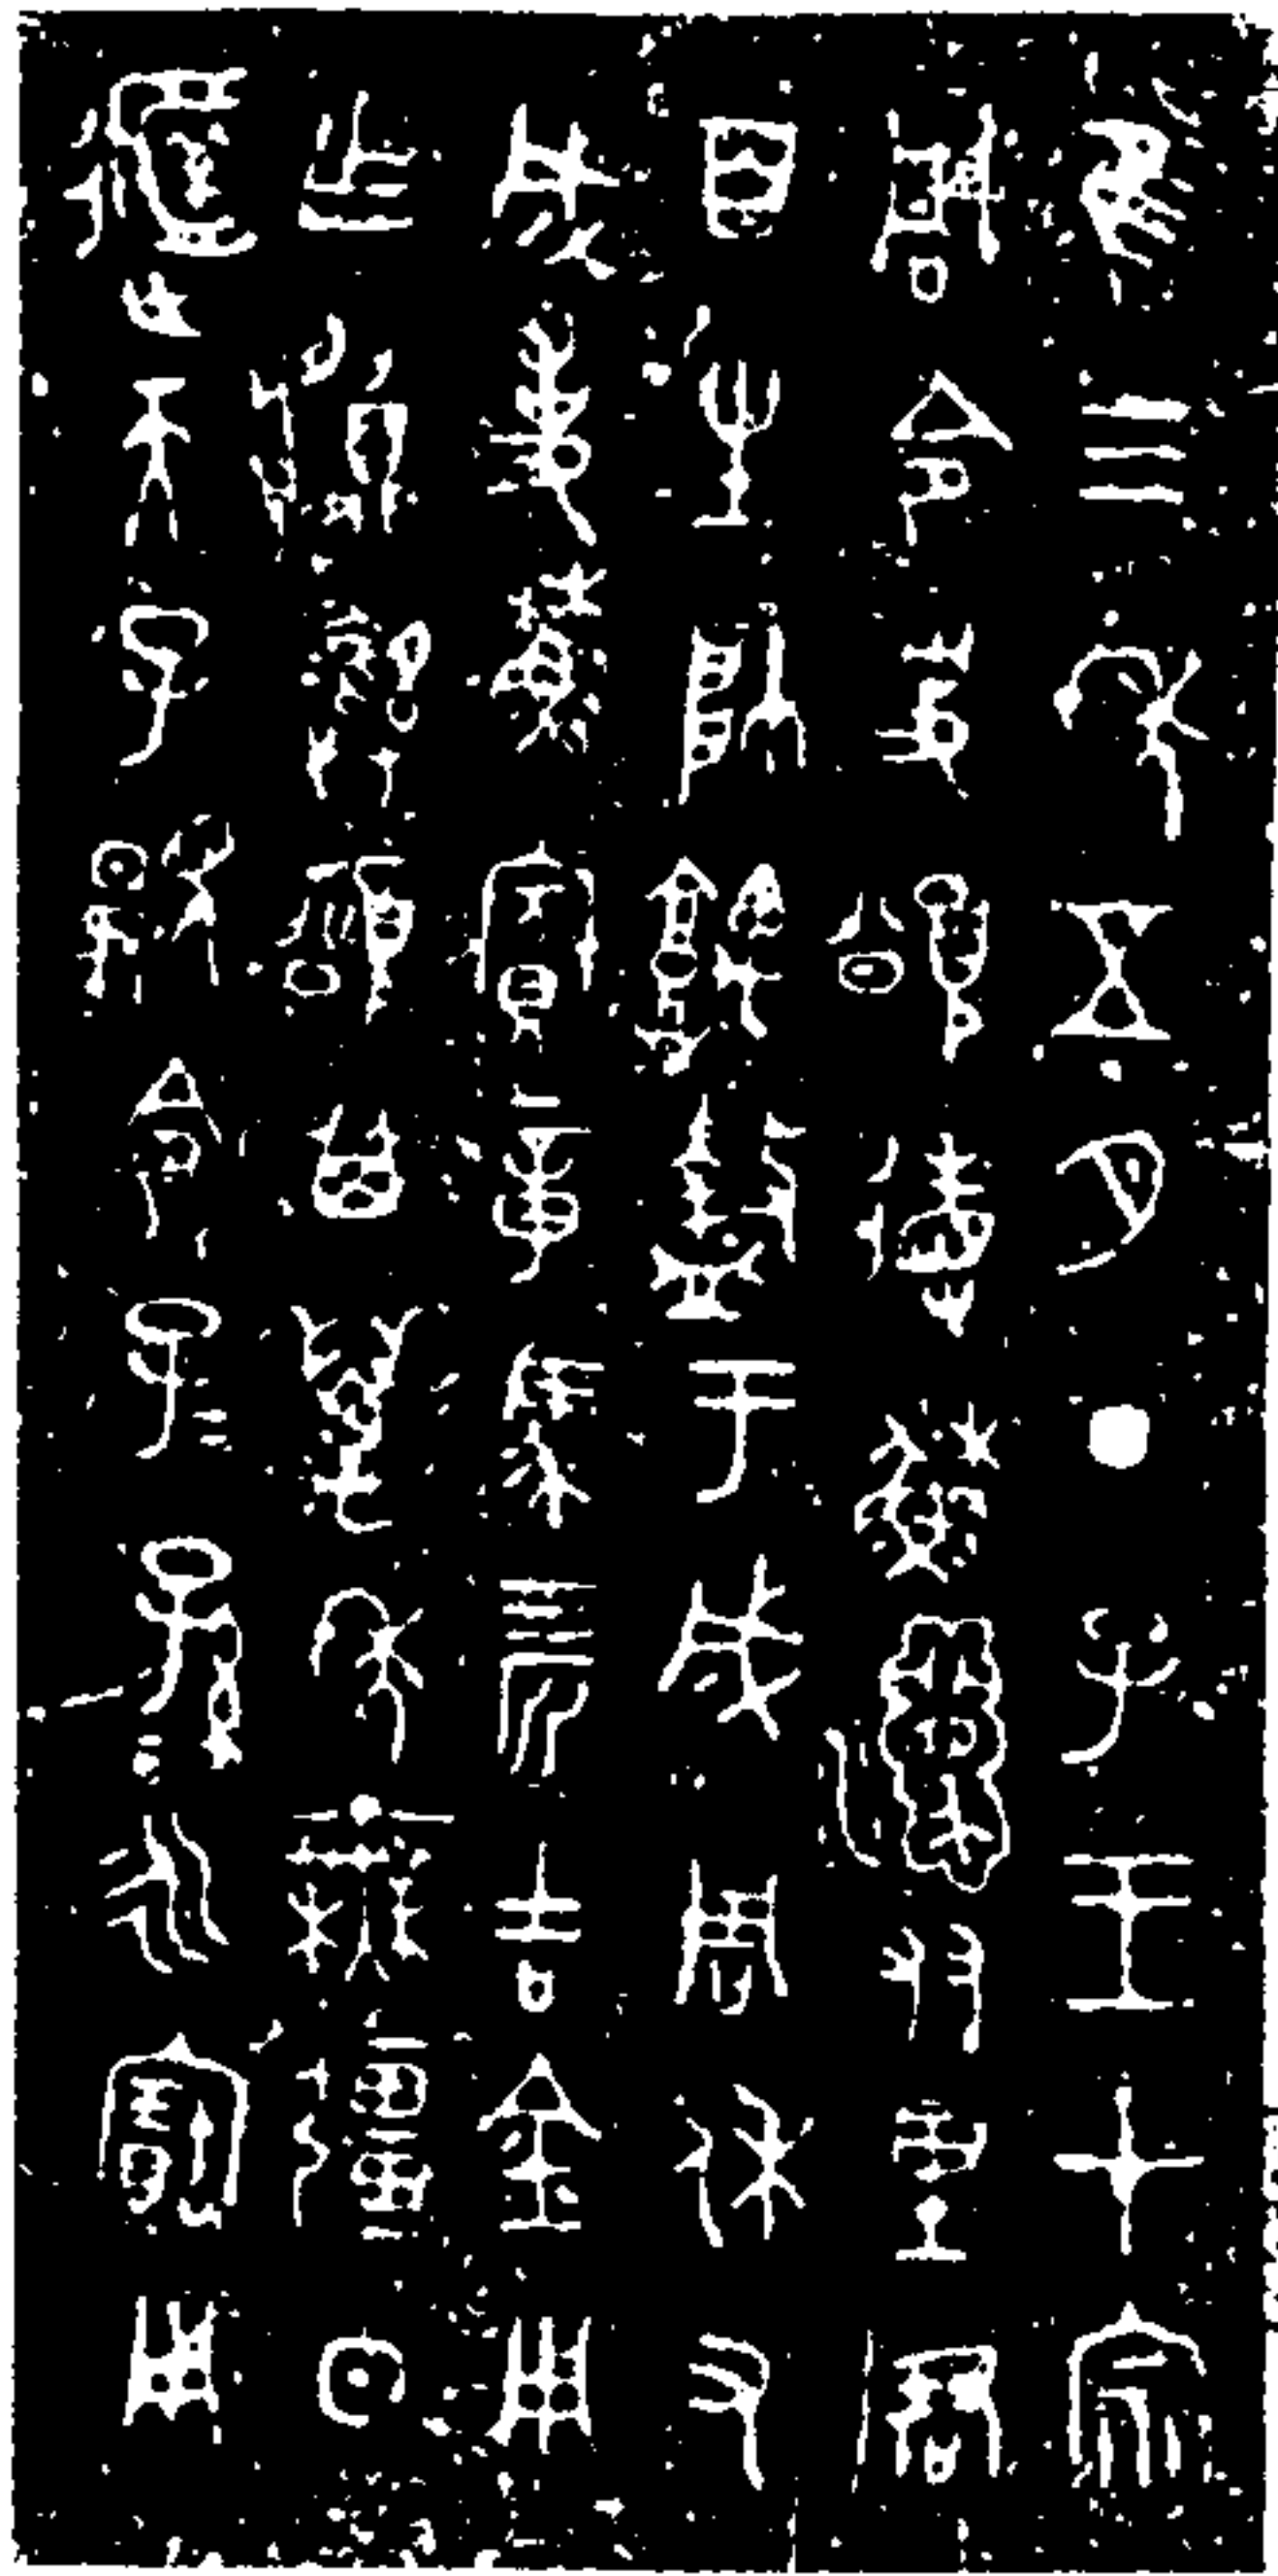 隹三年五月丁子王才宗
周令史頌省穌𤔲友里君
百生帥𩒨盩于成周休又
成事穌賓章馬四匹吉金用
乍𩰬彝頌其萬年無彊日
𨒙天子𩃲令子=孫=永寶用